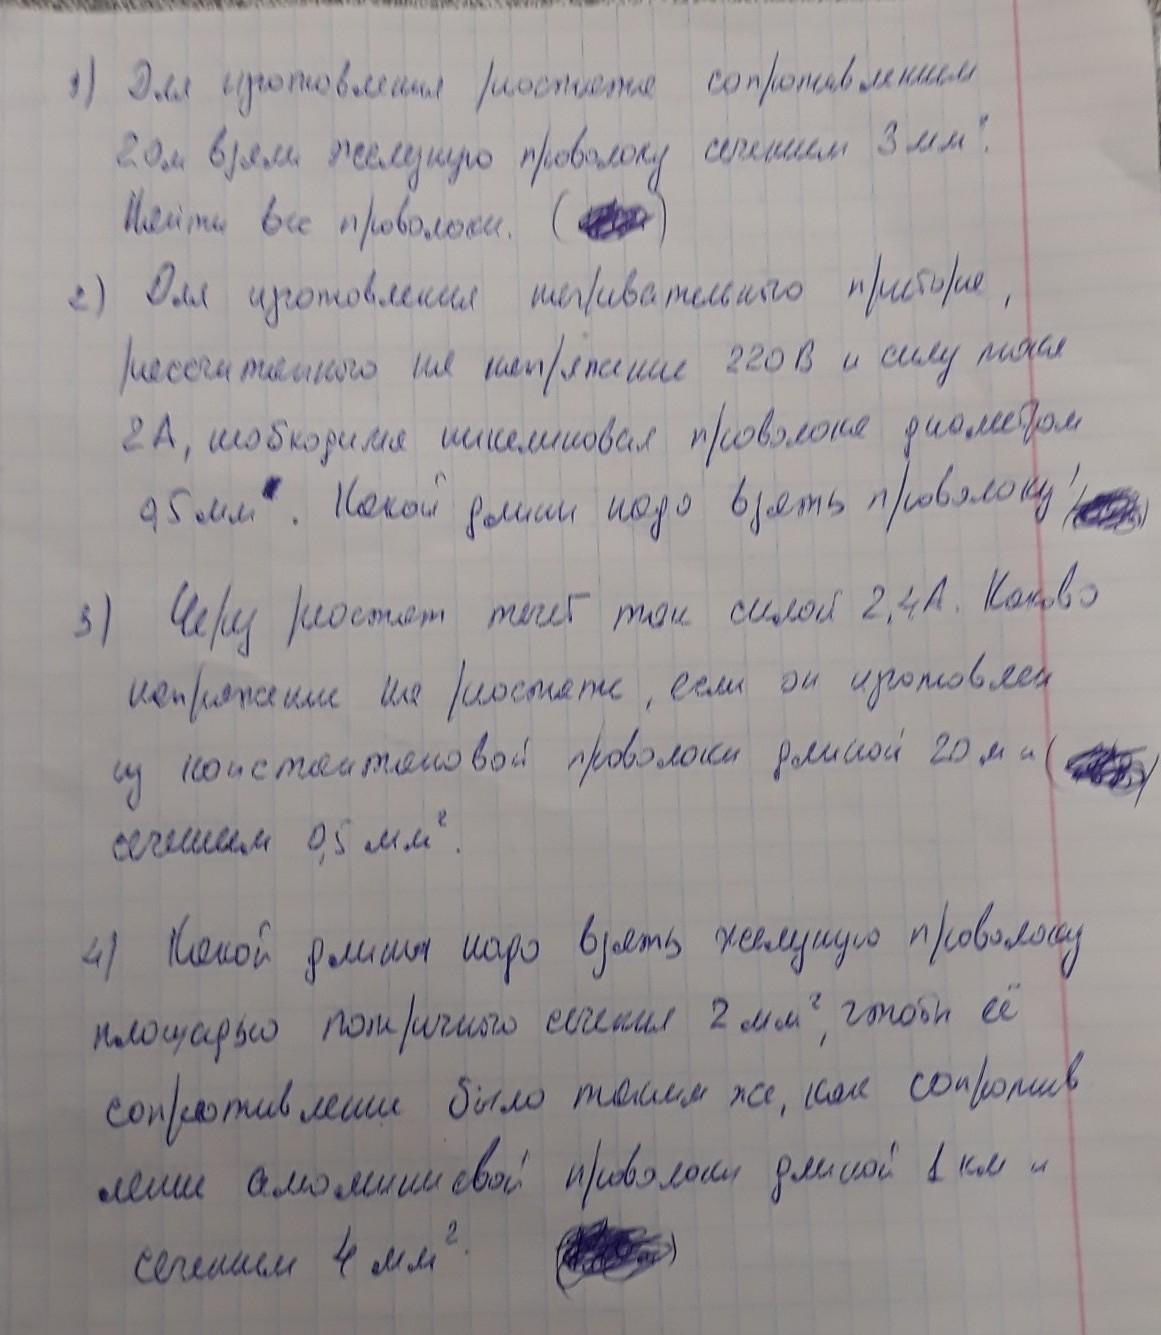 1) Для изготовления реостата сопротивлением
2 Ом взяли железную проволоку сечением 3 мм².
Найти вес проволоки. (
2) Для изготовления нагревательного прибора,
рассчитанного на напряжение 220 В и силу тока
2 А, необходима никелиновая проволока диаметром
0,5 мм. Какой длины надо взять проволоку?
3) Через реостат течёт ток силой 2,4 А. Каково
напряжение на реостате, если он изготовлен
из константановой проволоки длиной 20 м и
сечением 0,5 мм².
4) Какой длины надо взять железную проволоку
площадью поперечного сечения 2 мм², чтобы её
сопротивление было таким же, как сопротив
ление алюминиевой проволоки длиной 1 км и
сечением 4 мм².